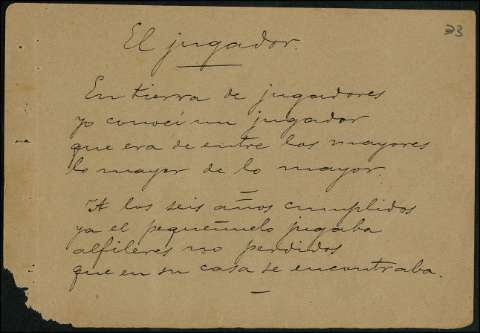 23
El jugador.
En tierra de jugadores
yo conocí un jugador
que era de entre los mayores
lo mayor de lo mayor.
A los seis años cumplidos
ya el pequeñuelo jugaba
alfileres no perdidos
que en su casa se encontraba.